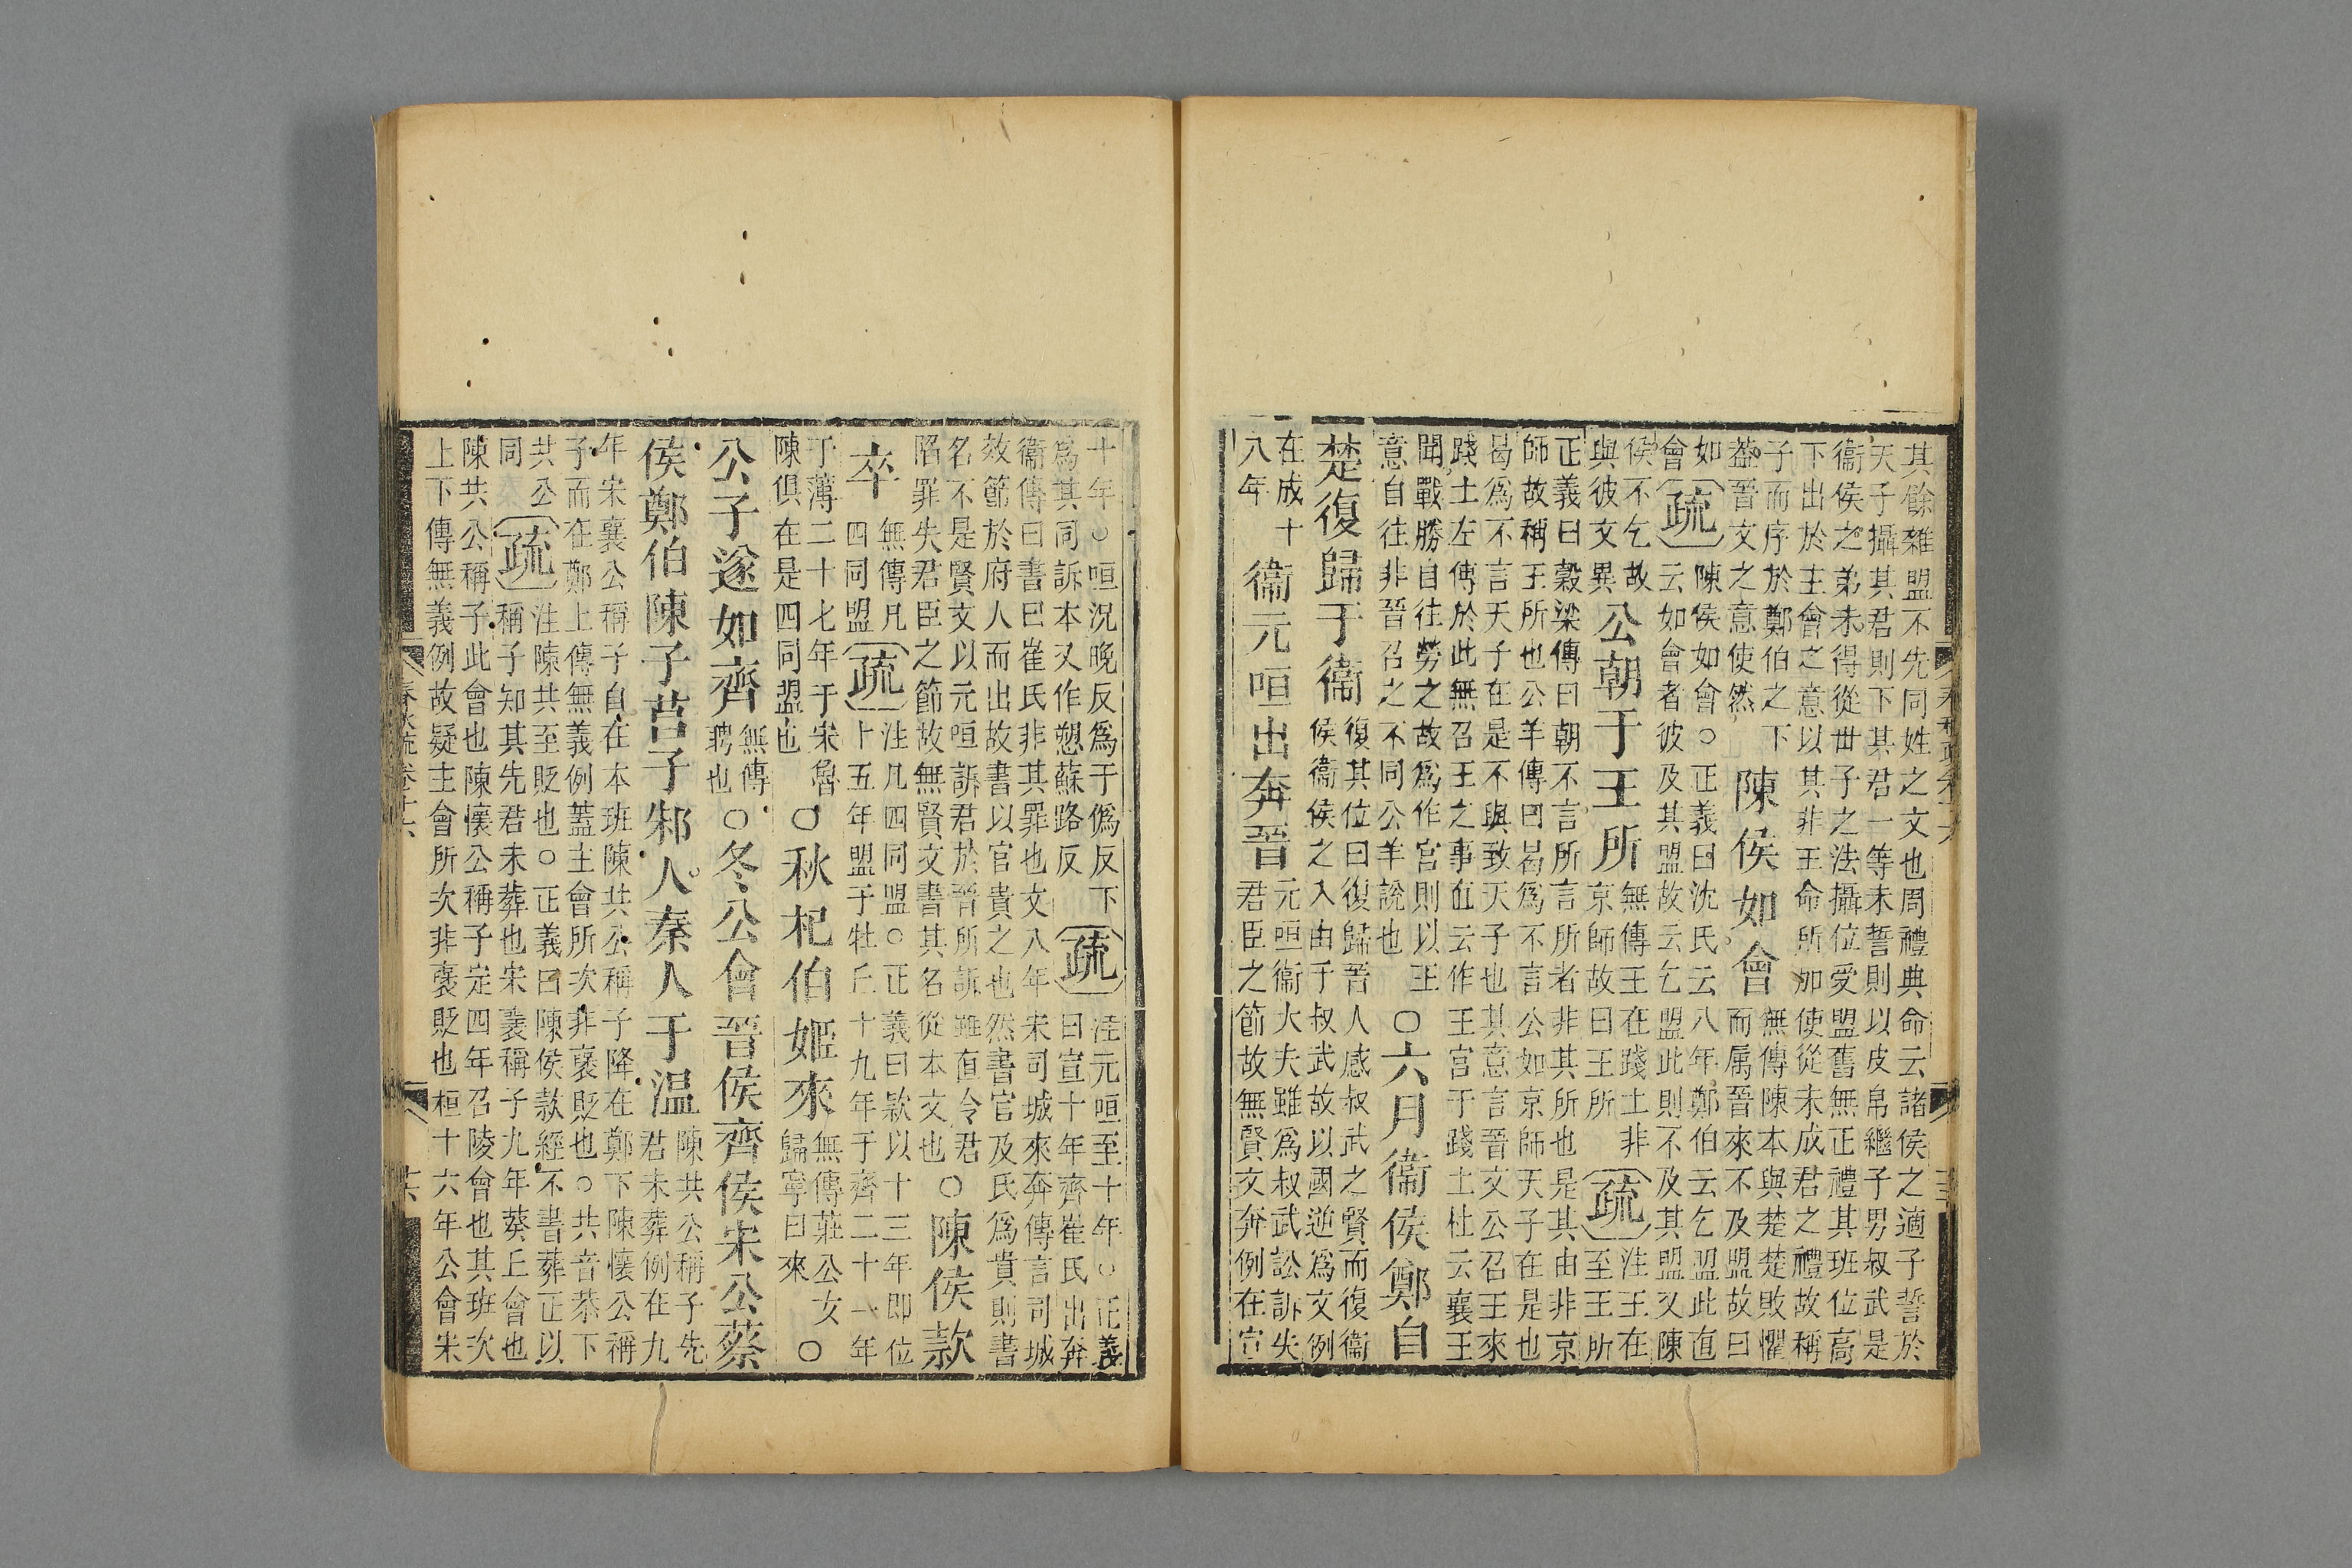 其餘雜盟不先同姓之文也周禮典命云諸侯之適子誓於
天子攝其君則下其君一等未誓則以皮帛繼子男叔武是
衞侯之弟未得從世子之法攝位受盟舊無正禮其班位高
下出於主會之意以其非王命所加使從未成君之禮故稱
子而序於鄭伯之下
蓋晉文之意使然
陳侯如會
無傳陳本與楚楚敗懼
而屬晉來不及盟故曰
如
會
疏
陳侯如會○正義曰沈氏云八年鄭伯云乞盟此直
云如會者彼及其盟故云乞盟此則不及其盟又陳
侯不乞故
與彼文異
公朝于王所
無傳王在踐土非
京師故曰王所
疏
注王在
至王所
正義曰穀梁傳曰朝不言所言所者非其所也是其由非京
師故稱王所也公羊傳曰曷爲不言公如京師天子在是也
曷爲不言天子在是不與致天子也其意言晉文公召王來
踐土左傳於此無召王之事直云作王宮于踐土杜云襄王
聞戰勝自往勞之故爲作宮則以王
意自往非晉召之不同公羊說也
○六月衞侯鄭自
楚復歸于衞
復其位曰復歸晉人感叔武之賢而復衞
侯衞侯之入由于叔武故以國逆爲文例
在成十
八年
衞元咺出奔晉
元咺衞大夫雖爲叔武訟訴失
君臣之節故無賢文奔例在宣
十年○咺況晚反爲于僞反下
爲其同訴本又作愬蘇路反
疏
注元咺至十年○正義
曰宣十年齊崔氏出奔
衞傳曰書曰崔氏非其罪也文八年宋司城來奔傳言司城
效節於府人而出故書以官貴之也然書官及氏爲貴則書
名不是賢文以元咺訴君於晉所訴雖直令君
陷罪失君臣之節故無賢文書其名從本文也
○陳侯款
卒
無傳凡
四同盟
疏
注凡四同盟○正義曰款以十三年卽位
十五年盟于牡丘十九年于齊二十一年
于薄二十七年于宋魯
陳俱在是四同盟也
○秋杞伯姬來
無傳莊公女
歸寧曰來
○
公子遂如齊
無傳
聘也
○冬公會晉侯齊侯宋公蔡
侯鄭伯陳子莒子邾人秦人于温
陳共公稱子先
君未葬例在九
年宋襄公稱子自在本班陳共公稱子降在鄭下陳懷公稱
子而在鄭上傳無義例蓋主會所次非褒貶也○共音恭下
共公
同
疏
注陳共至貶也○正義曰陳侯款經不書葬正以
稱子知其先君未葬也宋襄稱子九年葵丘會也
陳共公稱子此會也陳懷公稱子定四年召陵會也其班次
上下傳無義例故疑主會所次非褒貶也桓十六年公會宋
春秋疏卷十六